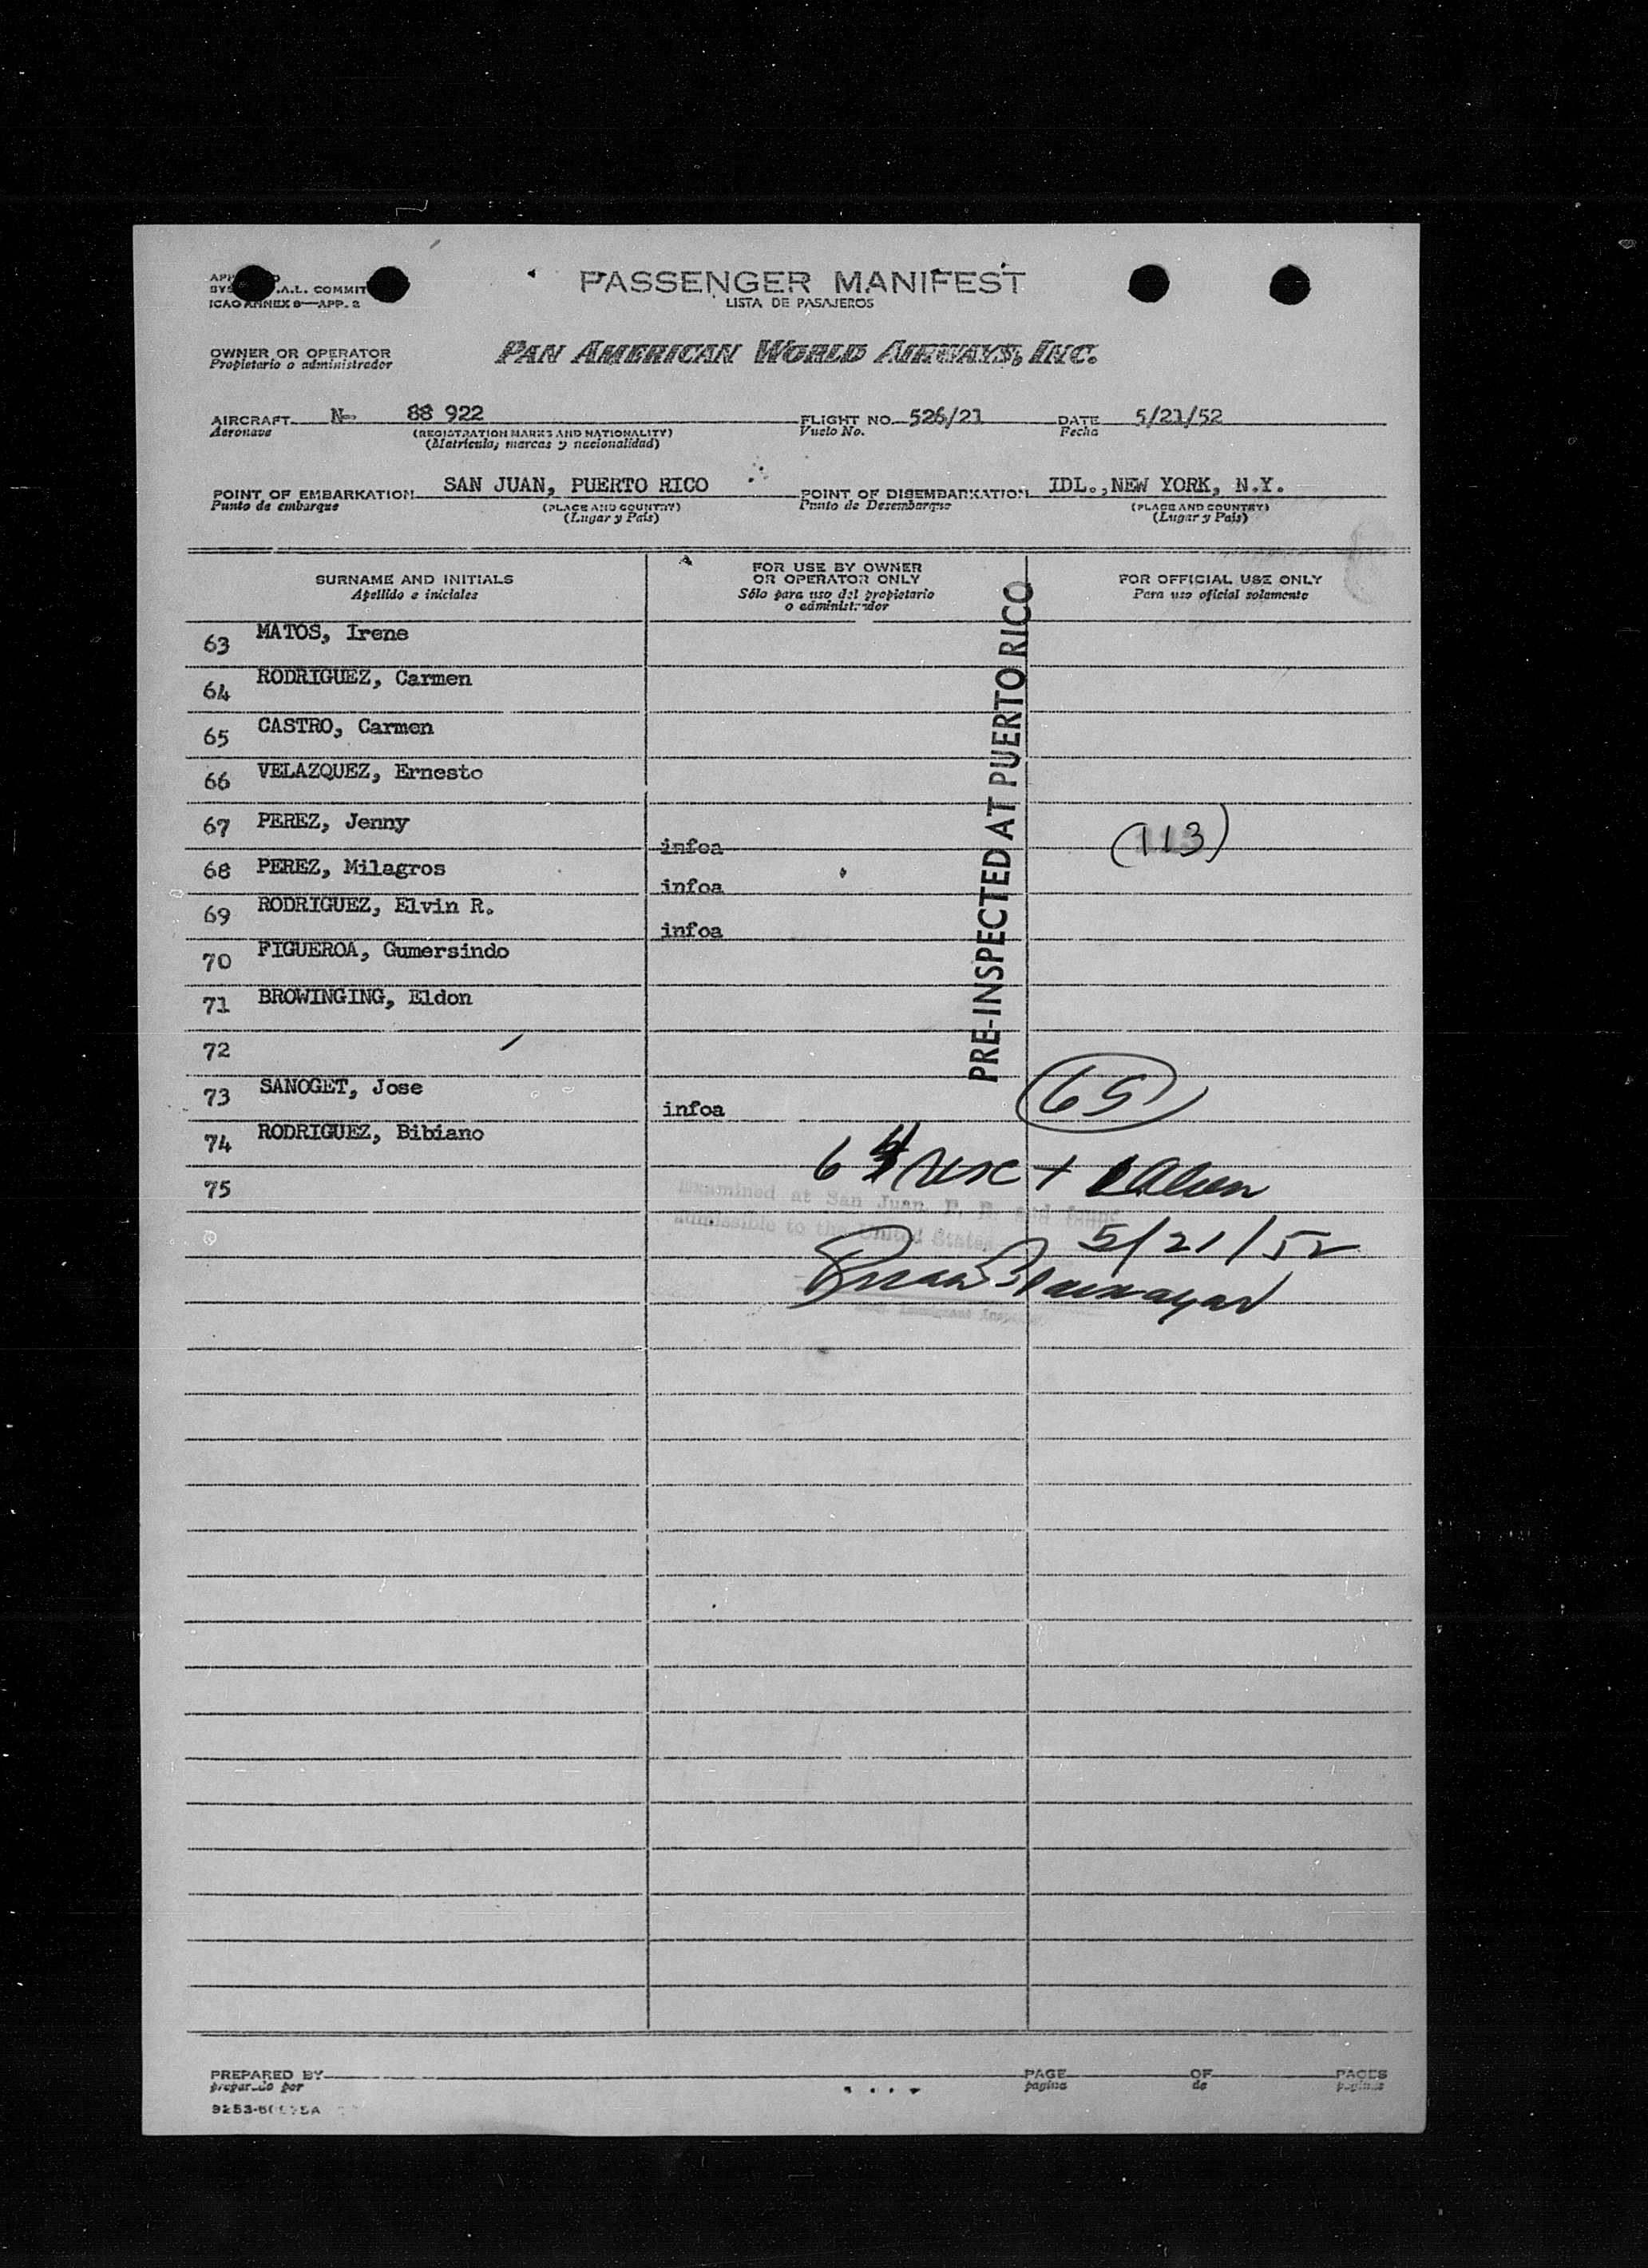 PASSENGER MANIFEST
LISTA DE PASAJEROS
.A.L. COMMIT
ICAO ANNEX 9—APP. 2
OWNER OR OPERATOR
Propietario o administrador
PAN AMERICAN WORLD AIRWAYS, INC.
AIRCRAFT N- 88 922 FLIGHT NO. 526/21 DATE 5/21/52
Aeronave (REGISTRATION MARKS AND NATIONALITY) Vuelo No. Fecha
(Matricula, marcas y nacionalidad)
POINT OF EMBARKATION SAN JUAN, PUERTO RICO POINT OF DISEMBARKATION IDL., NEW YORK, N.Y.
Punto de embarque (PLACE AND COUNTRY) Punto de Desembarque (PLACE AND COUNTRY)
(Lugar y País) (Lugar y País)
SURNAME AND INITIALS
Apellido e iniciales
FOR USE BY OWNER
OR OPERATOR ONLY
Sólo para uso del propietario
o administrador
FOR OFFICIAL USE ONLY
Para uso oficial solamente
PRE-INSPECTED AT PUERTO RICO
63 MATOS, Irene
64 RODRIGUEZ, Carmen
65 CASTRO, Carmen
66 VELAZQUEZ, Ernesto
67 PEREZ, Jenny infoa (113)
68 PEREZ, Milagros infoa
69 RODRIGUEZ, Elvin R. infoa
70 FIGUEROA, Gumersindo
71 BROWINGING, Eldon
72
73 SANOGET, Jose infoa (65)
74 RODRIGUEZ, Bibiano
64 usc + 1 alien
75
Examined at San Juan, P. R. and found
admissible to the United States
5/21/52
PREPARED BY PAGE OF PAGES
preparado por pagina de paginas